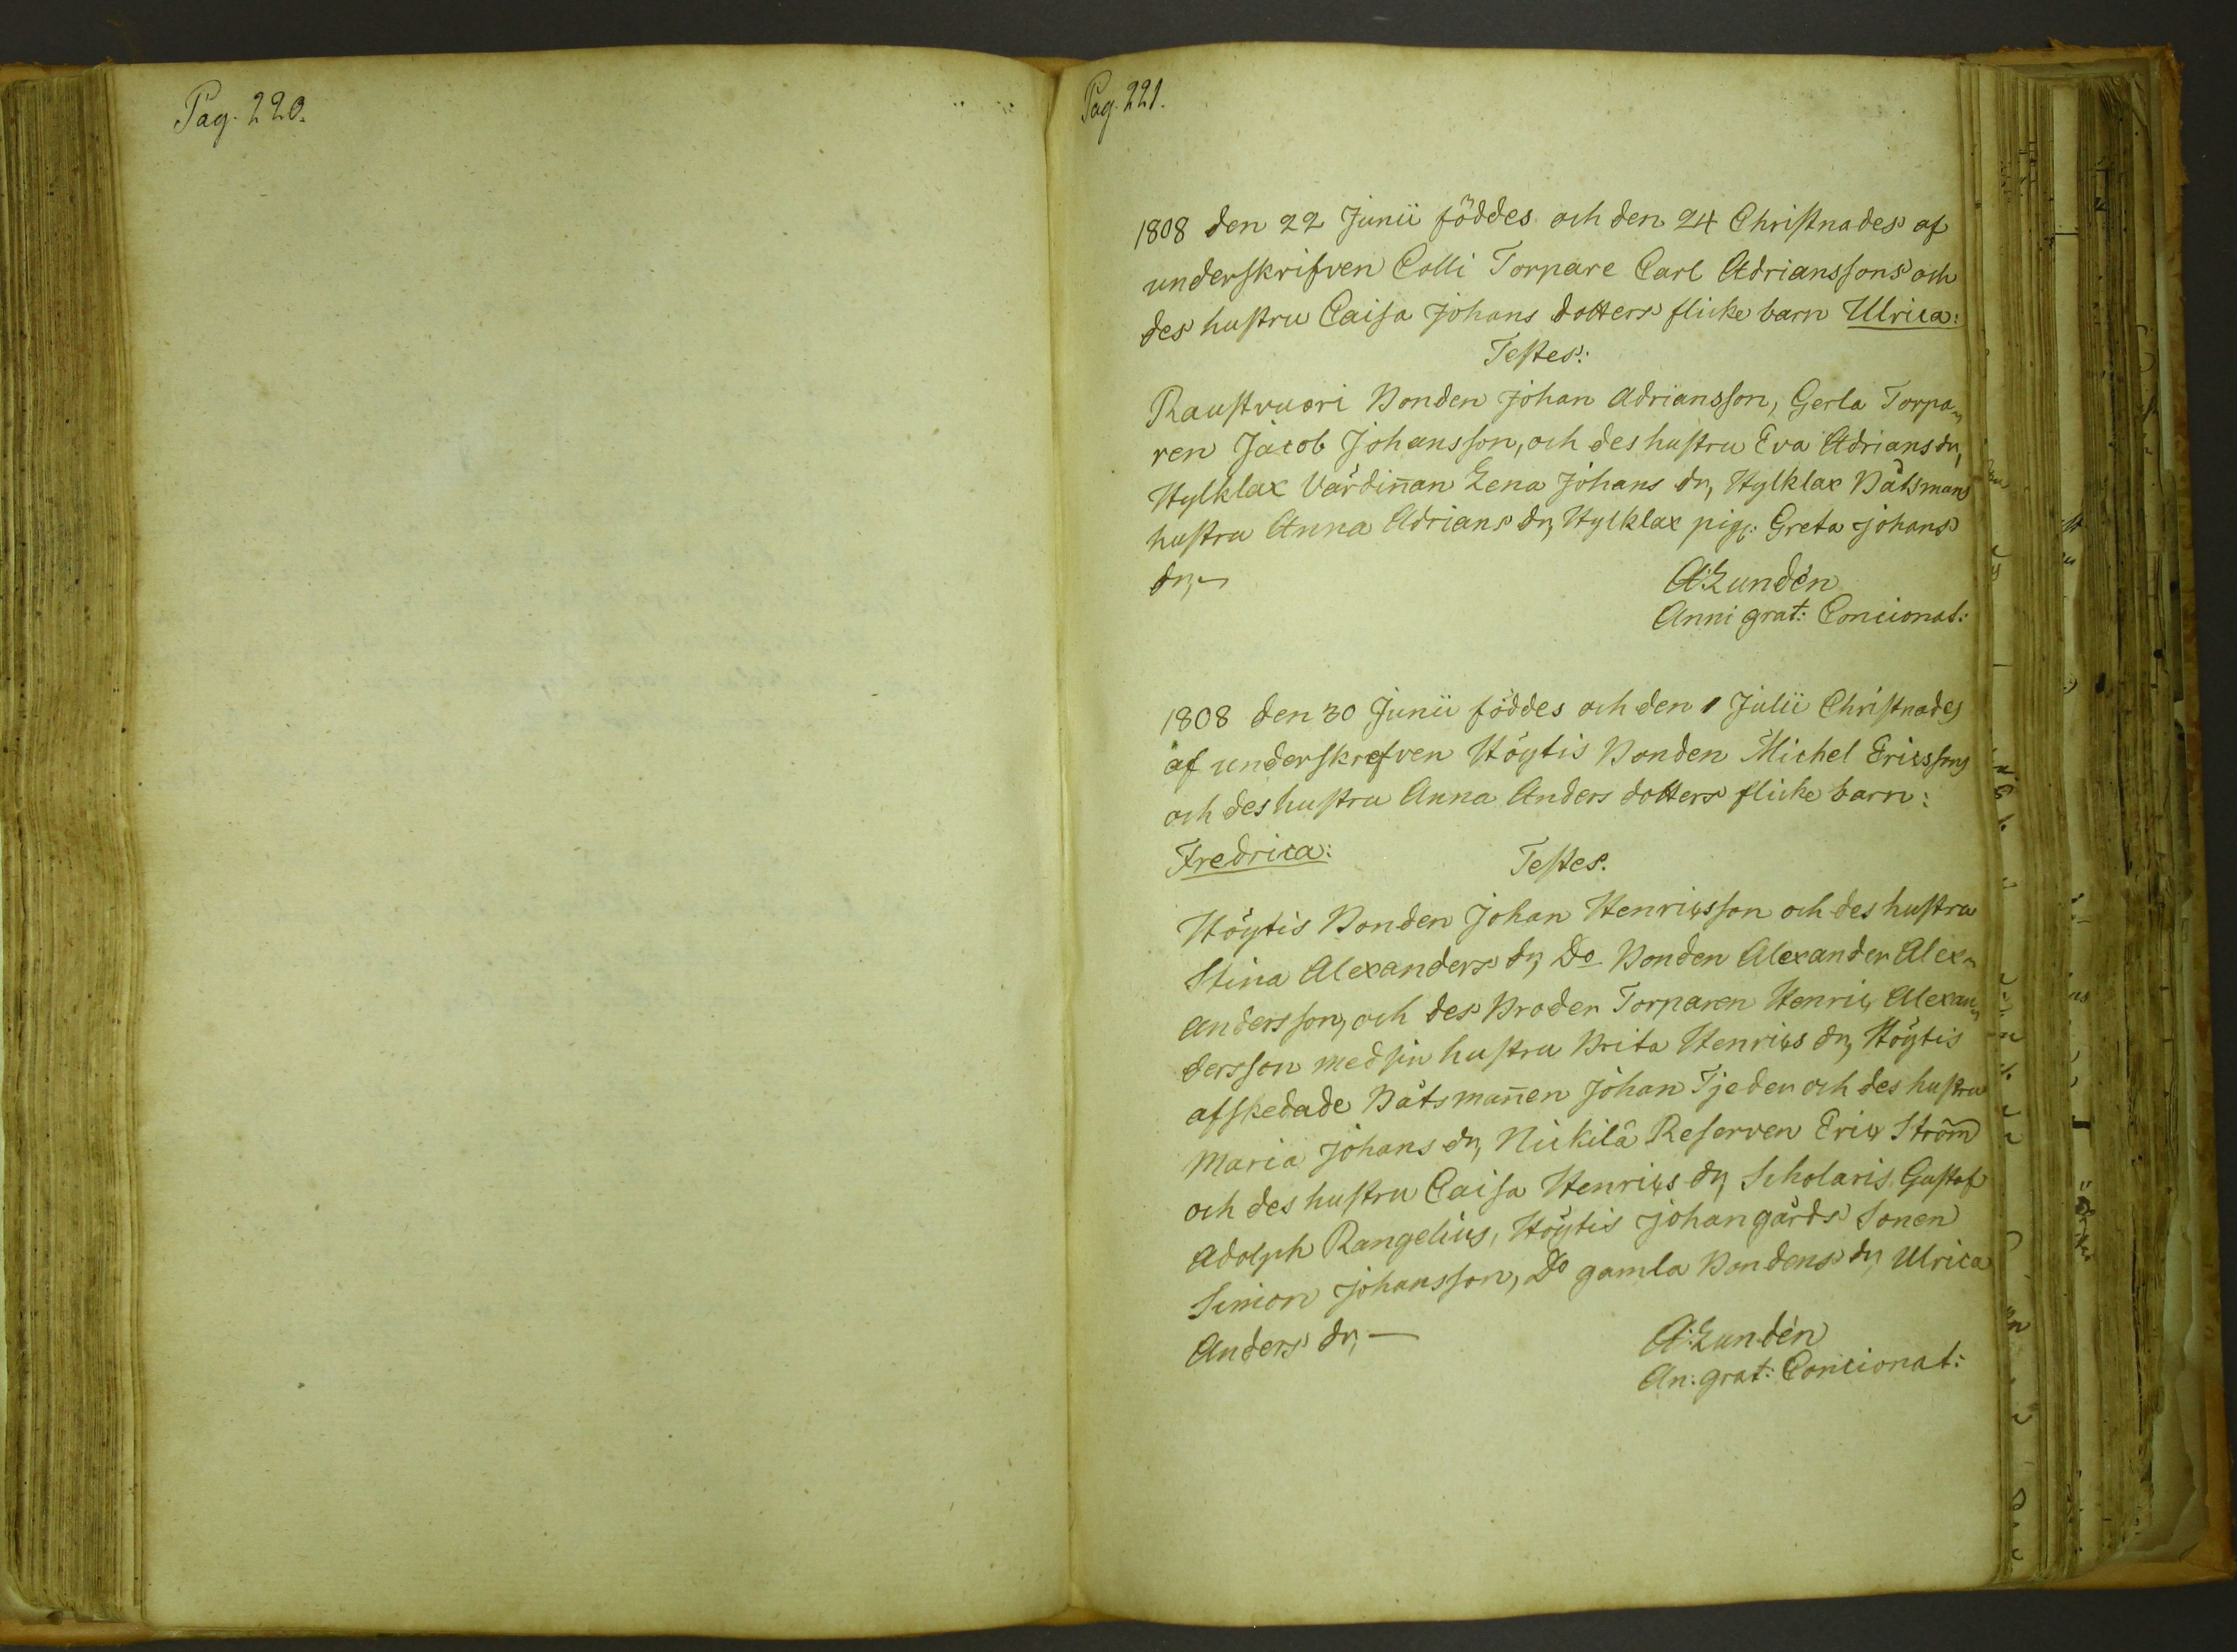 Pag. 220.
Pag. 221.
1808 den 22 Junii föddes och den 24 Christnades af
underskrifven Colli Torpare Carl Adrianssons och
des hustru Caisa Johans dotters flicke barn Ulrica:
Testes:
Raustvuori Bonden Johan Adriansson, Gerla Torpa„
ren Jacob Johansson, och des hustru Eva Adrians dr,
Hylklax Värdin̄an Lena Johans dr, Hylklax Båtsmans
hustru Anna Adrians dr, Hylklax pig: Greta Johans
dr, —
A: Lundén
Anni grat: Concionat:
1808 den 30 Junii föddes och den 1 Julii Christnades
af underskrefven Höytis Bonden Michel Ericssons
och des hustru Anna Anders dotters flicke barn:
Fredrica:
Testes.
Höytis Bonden Johan Henricsson och des hustru
Stina Alexanders dr, Do Bonden Alexander Alex„
andersson, och des Broder Torparen Henric Alexan„
dersson med sin hustru Brita Henrics dr, Höytis
afskedade Båtsman̄en Johan Tjeder och des hustru
Maria Johans dr, Nickilä Reserven Eric Ström
och des hustru Caisa Henrics dr, Scholaris Gustaf
Adolph Rangelius, Höytis Johangårds Sonen
Simon Johansson, Do gamla Bondens dr Ulrica
Anders dr, —
A: Lundén
An: grat: Concionat: